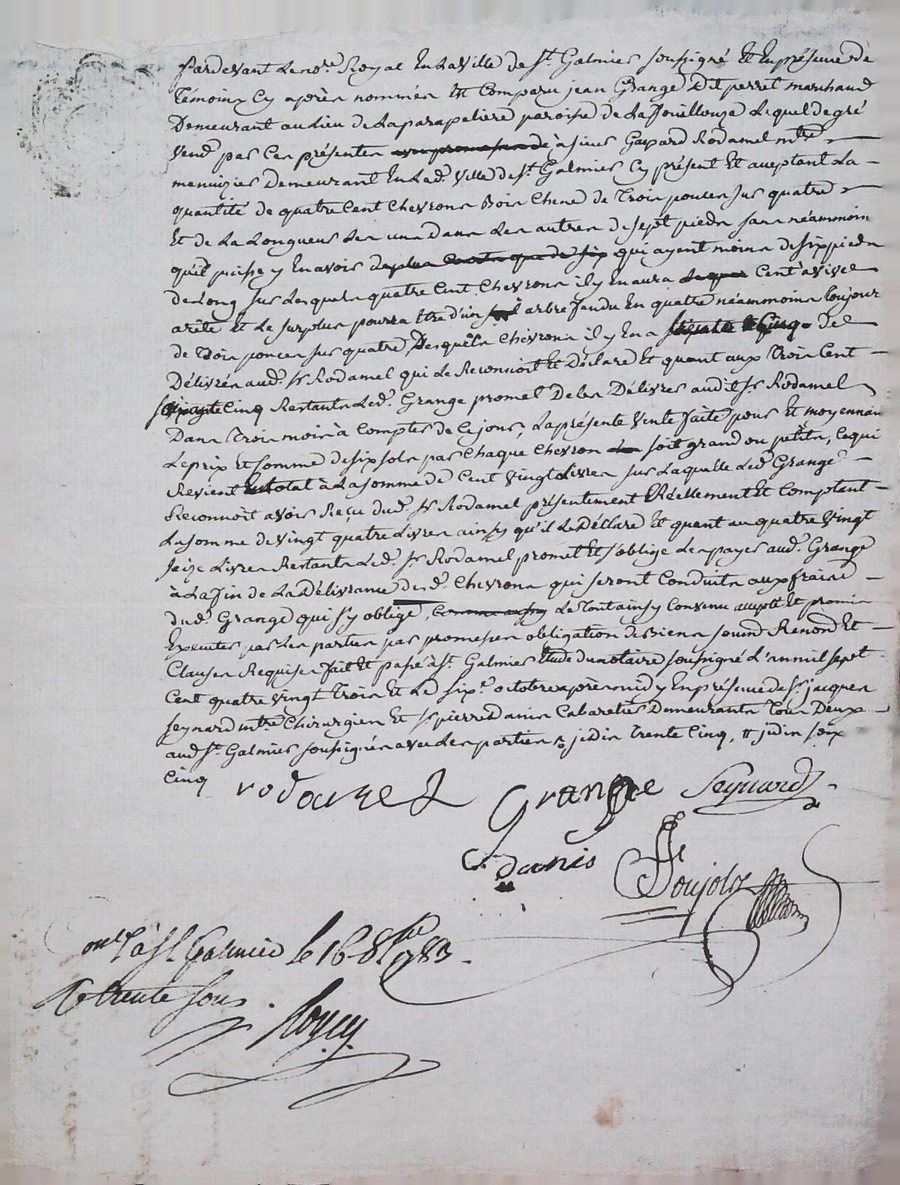 Pardevant Le no.re Royal En La ville de S.t Galmier soussigné Et En présence de
Témoins Cy après nommés Est Comparu jean Grange Dit perret marchand
Demeurant au Lieu de La parapeliere paroisse de La Lequel de gré
vend par Ces présentes à sieur Gaspard Rodamel m.tre
menuizier Demeurant En Lad. ville de S.t Galmier Cy présent Et aceptant La
quantité de quatre Cent Chevrons Bois Chene de Trois pouces sur quatre
Et de La Longueur Les uns Dans Les autres de sept pieds sans néammoin
qu'il puisse y En avoir qui ayent moins de six pieds
de Long sur Lesquels quatre Cent Chevrons il y En aura Cent à vive
arête Et Le surplus pourra Etre d'un arbre fendu En quatre néammoins toujour
de Trois pouces sur quatre Desquels Chevrons il y En a de
Délivrés aud. S.r Rodamel qui Le Reconnoit Et Déclare Et quant aux Trois Cent
Cinq Restants Led. Grange promet De Les Délivrer audit S.r Rodamel
Dans Trois mois à Compter de Ce jour, La présente vente faite pour Et moyennan
Le prix Et somme de six sols par Chaque Chevron soit grand ou petits, Ce qui
Revient En total à La somme de Cent vingt Livres sur Laquelle Led. Grange
Reconnoit avoir Reçu dud. S.r Rodamel présentement Réellement Et Comptant
La somme de vingt quatre Livres ainsy qu'il Le Déclare Et quant au quatre vingt
seize Livres Restants Led. S.r Rodamel promet Et s'oblige Les payer aud. Grange
à La fin de La Délivrance Desd. Chevrons qui seront Conduits aux fraix
dud. Grange qui s'y oblige, Le Tout ainsy Convenu accepté Et promis
Executer par Les parties par promesses obligation de Biens soumd Renond Et
Clauses Requises fait Et passé à S.t Galmier Etude du notaire soussigné L'an mil sept
Cent quatre vingt Trois Et Le six.e octobre après midy En présence de S.r jacques
seynard m.tre Chirurgien Et S.r pierre danis Cabaretier Demeurants Tous Deux
aud. S.t Galmier soussignés avec Les parties
Cinq
rodamel Grange Seynard
danis
à St Galmier le 16 8bre 1783.
trente sous